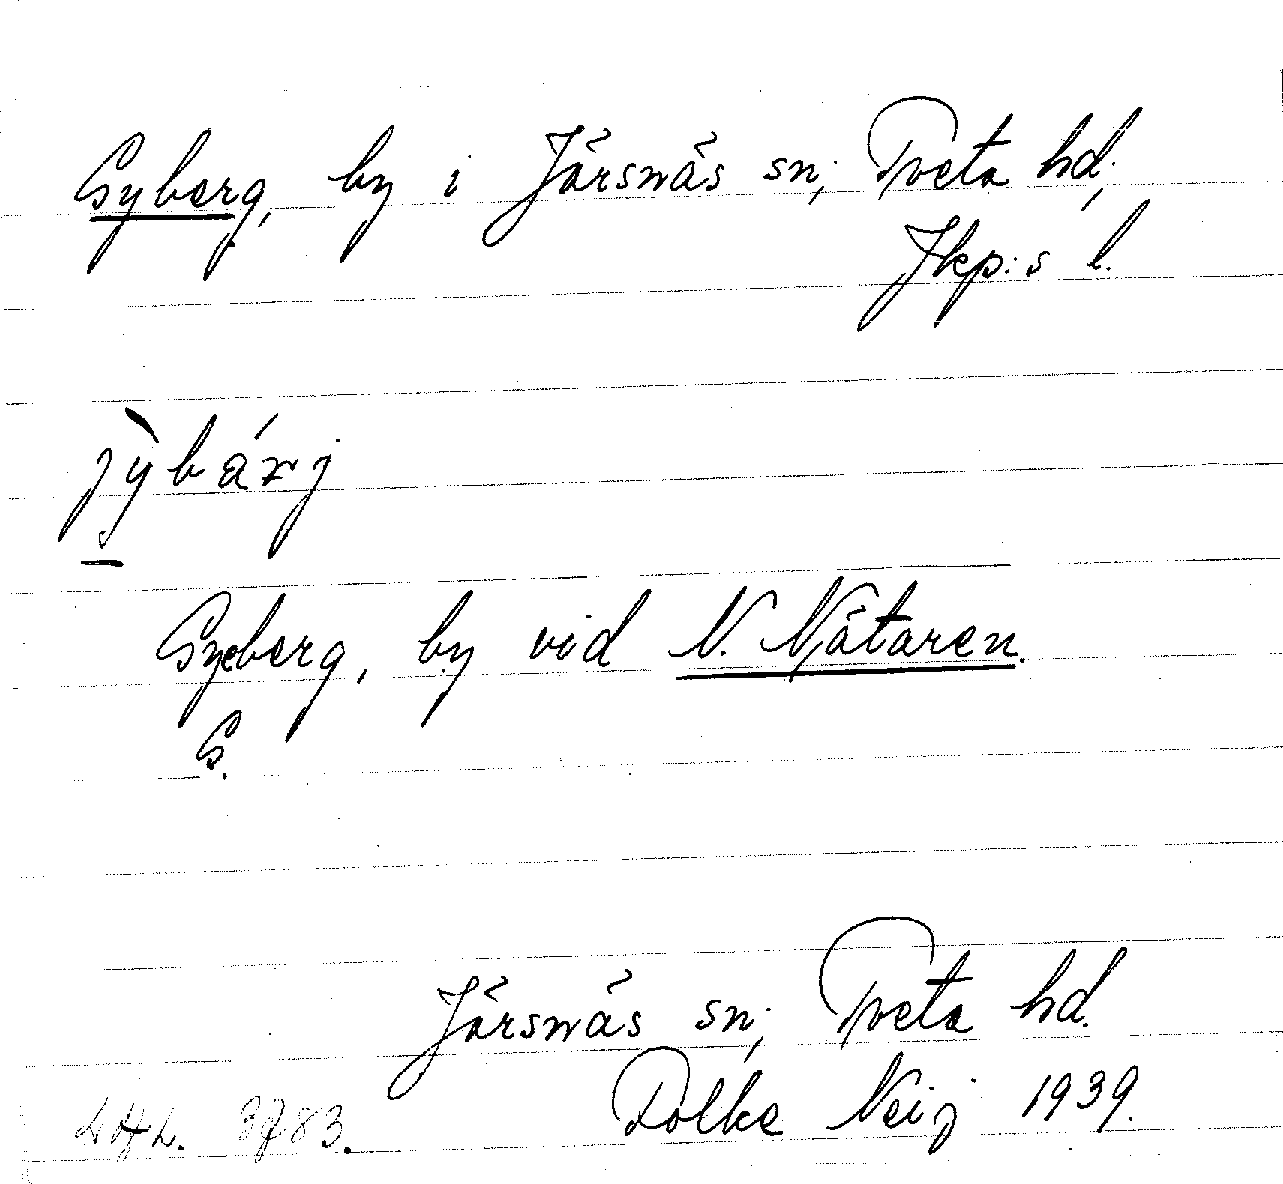 Gyberg, by i Järsnäs sn; Tveta hd;
Jkp:s l.
jy̆̀bárj
Gyeberg, by vid N. Nätaren.
G.
Järsnäs sn; Tveta hd.
Folke Neij 1939.
3783.